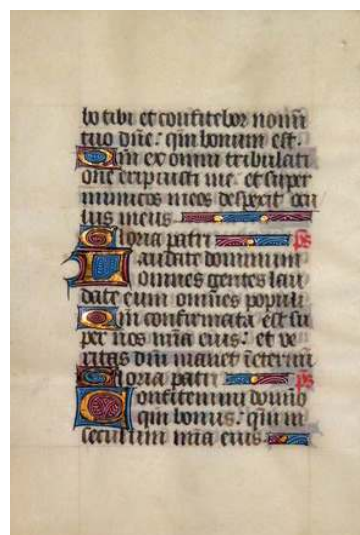 bo tibi et confitebor nomini
tuo dñe: qm̃ bonum est.
Qm̃ ex omni tribulati
one eripuisti me. et super
inimicos meos despexit ocu
lus meus.
Gloria patri ps̃
Laudate dominum
omnes gentes lau
date eum omnes populi
Qm̃ confirmata est su
per nos mĩa eius: et ve
ritas dñi manet ĩeternũ
Gloria patri ps̃
Confitemini domino
qm̃ bonus: qm̃ in
seculum mĩa eius.